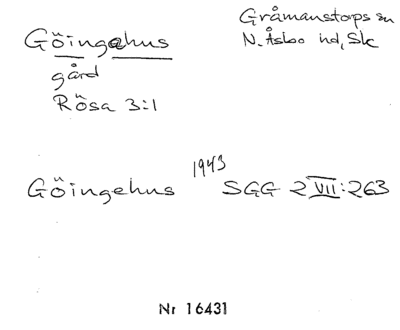 Göingehus
gård
Rösa 3:1
Gråmanstorps sn
N. Åsbo hd, Sk
Göingehus 1943 SGG 2 VII:263
Nr 16431